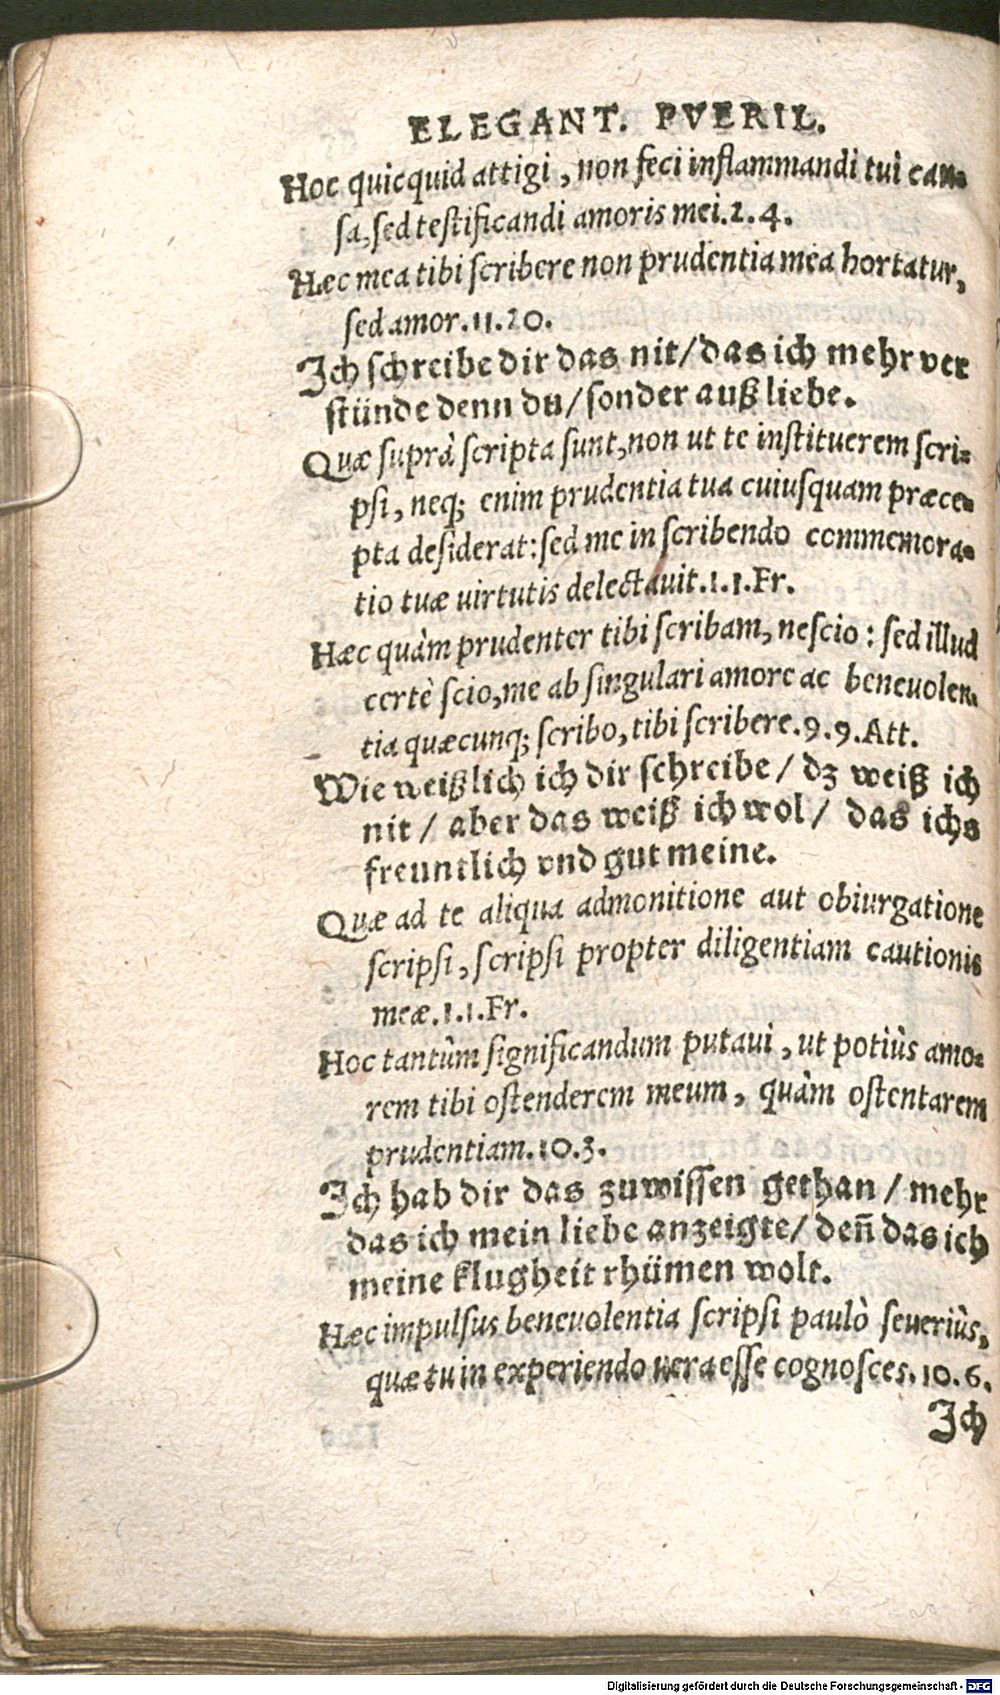 ELEGANT. PVERIL.
Hoc quicquid attigi, non feci inflammandi tui cau-
sa, sed testificandi amoris mei. 2. 4.
Hæc mea tibi scribere non prudentia mea hortatur,
sed amor. 11. 20.
Ich schreibe dir das nit/ das ich mehr ver
stünde denn du/ sonder auß liebe.
Quæ suprà scripta sunt, non ut te instituerem scri-
psi, neq; enim prudentia tua cuiusquam præce-
pta desiderat: sed me in scribendo commemora-
tio tuæ virtutis delectauit. 1. 1. Fr.
Hæc quàm prudenter tibi scribam, nescio: sed illud
certè scio, me ab singulari amore ac beneuolen-
tia quæcunq; scribo, tibi scribere. 9. 9. Att.
Wie weißlich ich dir schreibe/ dz weiß ich
nit/ aber das weiß ich wol/ das ichs
freuntlich vnd gut meine.
Quæ ad te aliqua admonitione aut obiurgatione
scripsi, scripsi propter diligentiam cautionis
meæ. 1. 1. Fr.
Hoc tantùm significandum putaui, ut potiùs amo-
rem tibi ostenderem meum, quàm ostentarem
prudentiam. 10. 3.
Ich hab dir das zuwissen gethan/ mehr
das ich mein liebe anzeigte/ deñ das ich
meine klugheit rhümen wolt.
Hæc impulsus beneuolentia scripsi paulò seueriùs,
quæ tu in experiendo uera esse cognosces. 10. 6.
Ich
Digitalisierung gefördert durch die Deutsche Forschungsgemeinschaft - DFG